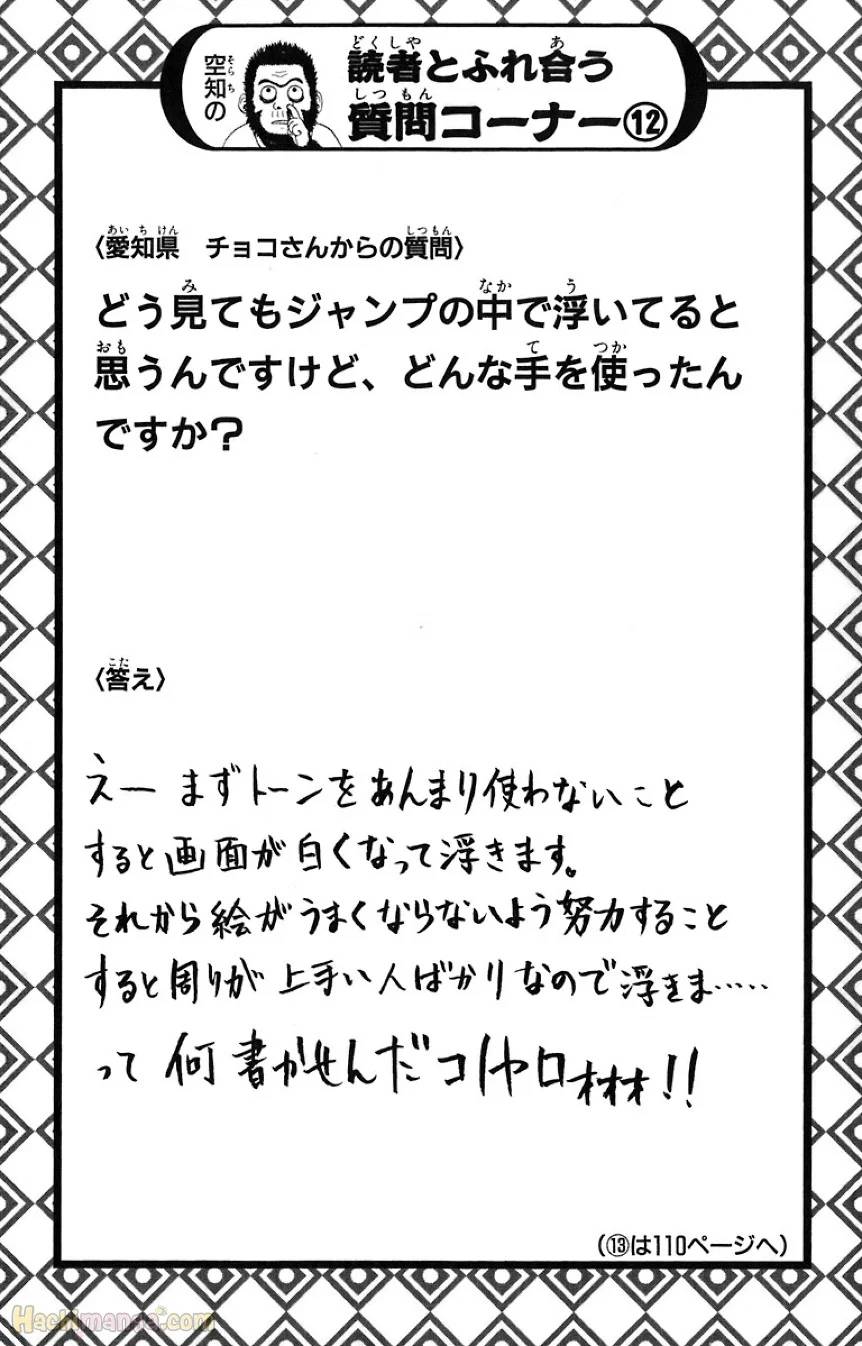 空知の
読者とふれ合う
質問コーナー⑫
〈愛知県 チョコさんからの質問〉
どう見てもジャンプの中で浮いてると
思うんですけど、どんな手を使ったん
ですか？
〈答え〉
えー まずトーンをあんまり使わないこと
すると画面が白くなって浮きます。
それから絵がうまくならないよう努力すること
すると周りが上手い人ばかりなので浮きま……
って何書かせんだコノヤロォォォ!!
(⑬は110ページへ)
Hachimanga.com